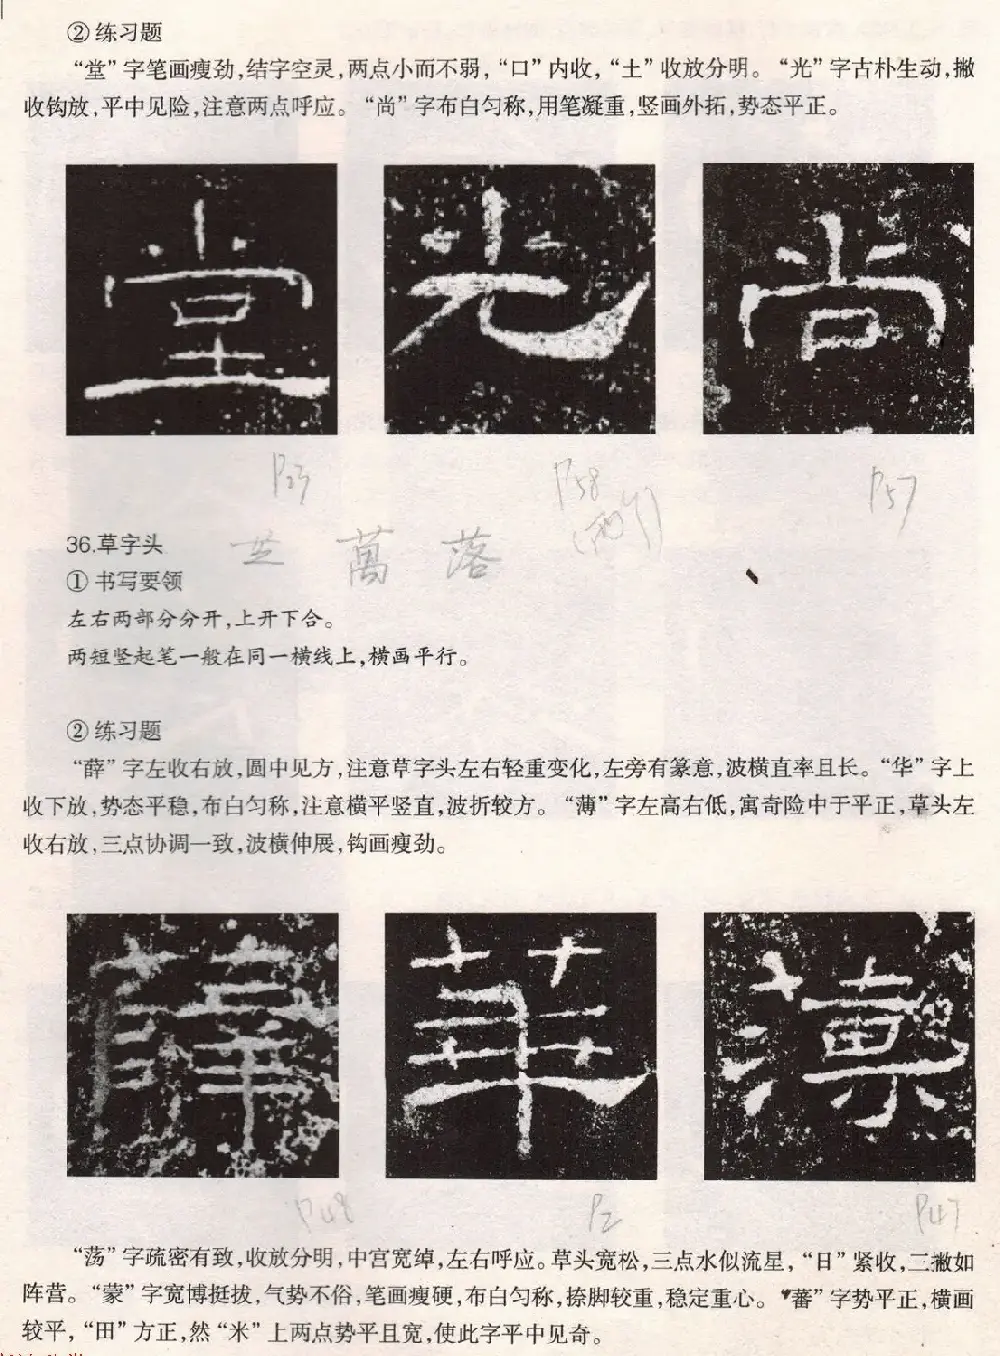 ② 练习题
“堂”字笔画瘦劲,结字空灵,两点小而不弱,“口”内收,“土”收放分明。“光”字古朴生动,撇
收钩放,平中见险,注意两点呼应。“尚”字布白匀称,用笔凝重,竖画外拓,势态平正。
堂 光 尚
P23 P58 P57
36.草字头 芝 萬 落
① 书写要领
左右两部分分开,上开下合。
两短竖起笔一般在同一横线上,横画平行。
② 练习题
“薛”字左收右放,圆中见方,注意草字头左右轻重变化,左旁有篆意,波横直率且长。“华”字上
收下放,势态平稳,布白匀称,注意横平竖直,波折较方。“薄”字左高右低,寓奇险中于平正,草头左
收右放,三点协调一致,波横伸展,钩画瘦劲。
薛 華 薄
P48 P2 P47
“荡”字疏密有致,收放分明,中宫宽绰,左右呼应。草头宽松,三点水似流星,“日”紧收,二撇如
阵营。“蒙”字宽博挺拔,气势不俗,笔画瘦硬,布白匀称,捺脚较重,稳定重心。“蕃”字势平正,横画
较平,“田”方正,然“米”上两点势平且宽,使此字平中见奇。